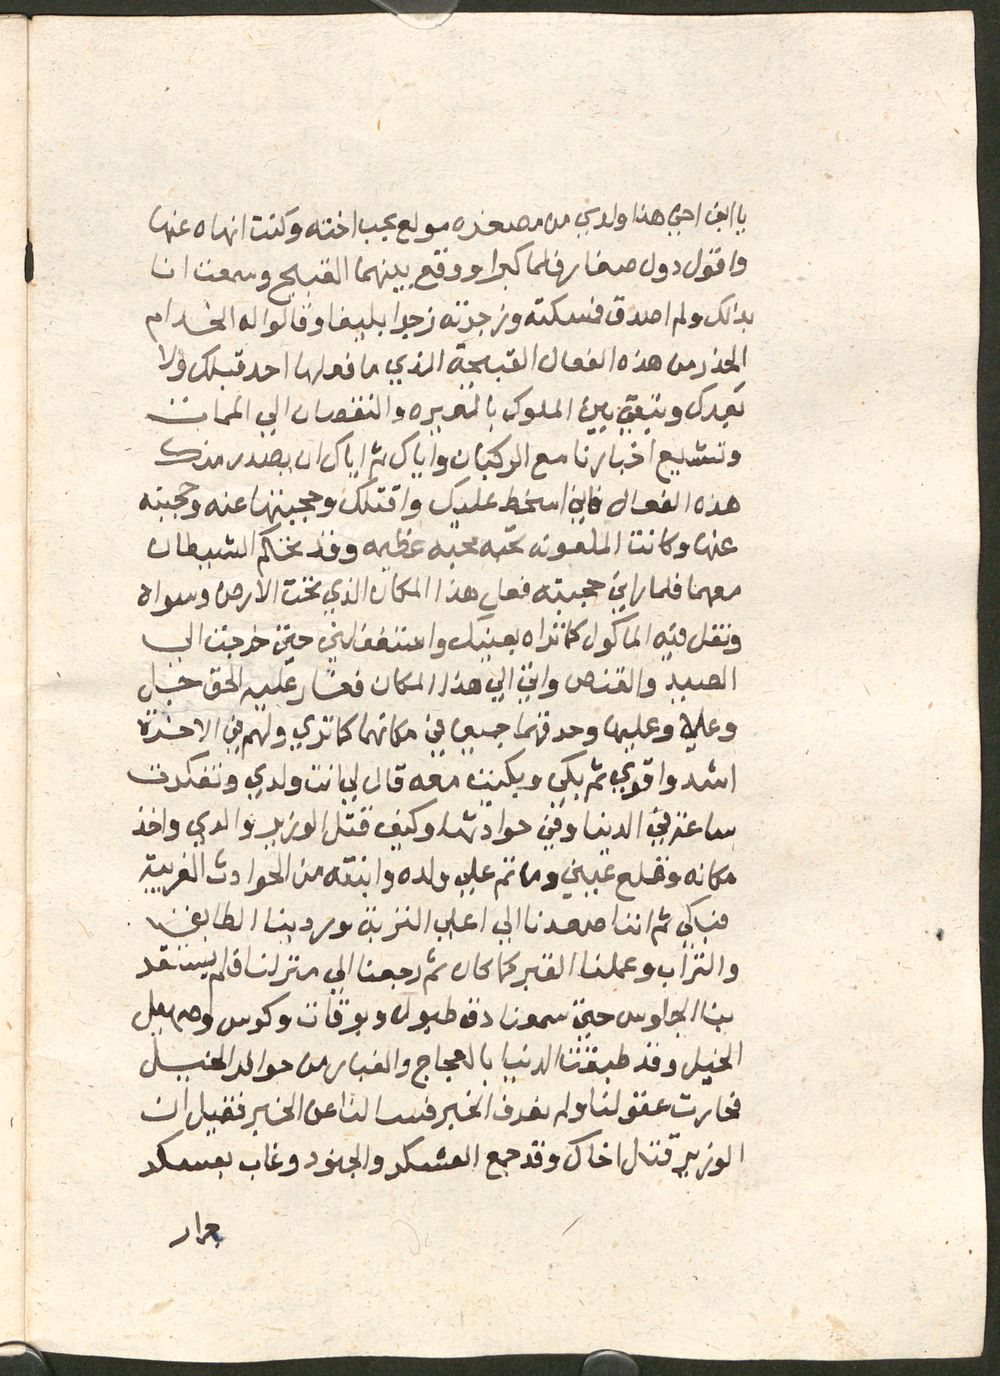 يا ابن اخي هذا ولدي من مصغره مولع بحب اخته وكنت انهاه عنها
واقول دول صغار فلما كبرا ووقع بينهما القبيح وسمعت انا
بدالك ولم اصدق فمسكته وزجرته زجرا بليغا وقالوا له الخدام
الحذر من هذه الفعال القبيحة الذي ما فعلها احد قبلك ولا
بعدك وتبقي بين الملوك بالمعيره والنقصان الي الممات
وتشيع اخبارنا مع الركبان واياك ثم اياك ان يصدر منك
هذه الفعال فاني اسخط عليك واقتلك وحجبتها عنه وحجبته
عنها وكانت الملعونه تحبه محبه عظيمه وقد تحكم الشيطان
معهما فلما راني حجبته فعل هذا المكان الذي تحت الارض وسواه
ونقل فيه الماكول كما تراه بعينك واستغفلني حتي خرجت الي
الصيد والقنص واتي الي هذا المكان فغار عليه الحق جل
وعلا وعليها وحرقهما جميعا في مكانهما كما تري ولهم في الاخرة
اشد واقوي ثم بكي وبكيت معه قال لي انت ولدي وتفكرت
ساعة في الدنيا وفي حوادثها وكيف قتل الوزير والدي واخذ
مكانه وقلع عيني وما تم علي ولده وابنته من الحوادث الغريبة
فبكي ثم اننا صعدنا الي اعلي التربة وردينا الطابق
والتراب وعملنا القبر كما كان ثم رجعنا الي منزلنا فلم يستقد
بنا الجلوس حتي سمعنا دق طبول وبوقات وكوس وصهيل
الخيل وقد طبقت الدنيا بالعجاج والغبار من حوافر الخيل
فحارت عقولنا ولم نعرف الخبر فسالنا عن الخبر فقيل ان
الوزير قتل اخاك وقد جمع العسكر والجنود وغاب بعسكر
جرار